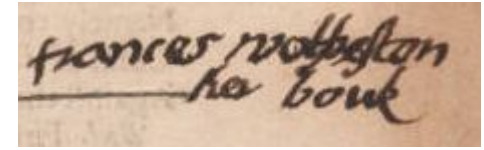 frances wolfreston
hor bouk